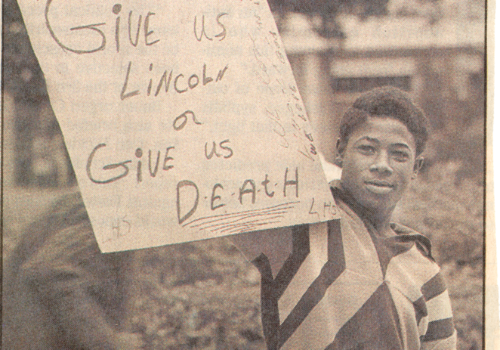 Give us
Lincoln
or
Give us
D-E-A-t-H
LHS
HS